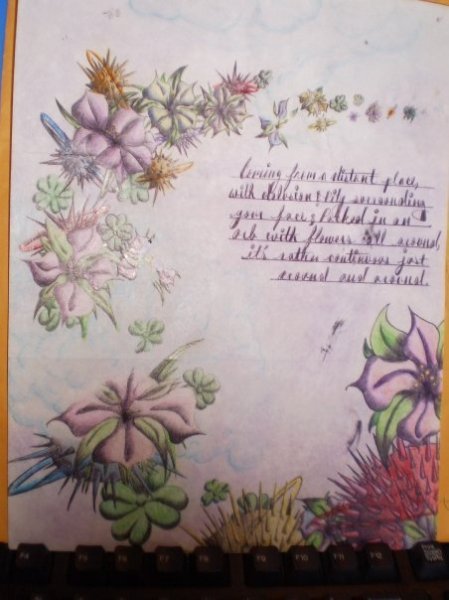 Coming from a distant place,
with delusion & lily surrounding
your face & locked in an
orb with flowers all around,
it's rather continuous just
around and around.
F4 F5 F6 F7 F8 F9 F10 F11 F12